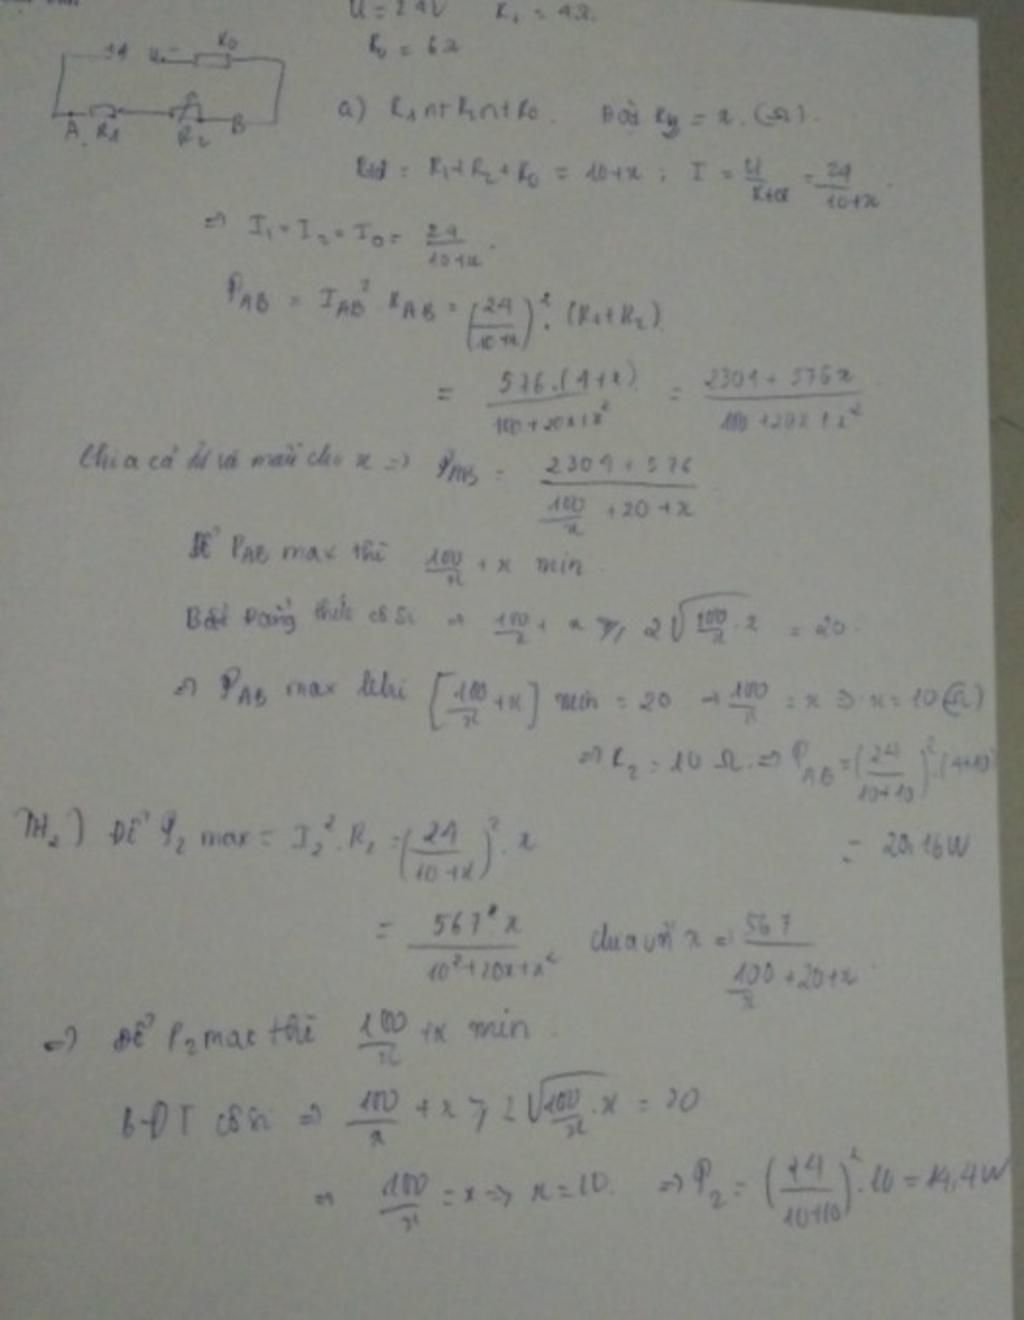 U = 24V R₁ = 4Ω
R₀ = 6Ω
U R₀
A R₁ R₂ B
a) R₁ nt R₂ nt R₀. Đặt R₂ = x. (Ω).
Rtđ = R₁+R₂+R₀ = 10+x ; I = U/Rtđ = 24/(10+x)
=> I₁ = I₂ = I₀ = 24/(10+x).
P_AB = I_AB². R_AB = (24/(10+x))². (R₁+R₂)
= 576.(4+x)/(100+20x+x²) = (2304+576x)/(100+20x+x²)
Chia cả tử và mẫu cho x => P_AB = (2304+576)/(100/x +20+x)
Để P_AB max thì 100/x + x min.
Bất Đẳng thức cô si => 100/x + x ≥ 2√(100/x . x) = 20.
=> P_AB max khi [100/x + x] min = 20 → 100/x = x => x = 10 (Ω)
=> R₂ = 10 Ω. => P_AB = (24/(10+10))².(4+10)
= 20,16W
TH₂) Để P₂ max = I₂². R₂ = (24/(10+x))². x
= 567 x/(10²+20x+x²) chia với x = 567/(100/x +20+x)
=> Để P₂ max thì 100/x + x min.
B-ĐT cô si => 100/x + x ≥ 2√(100/x . x) = 20
=> 100/x = x => x = 10. => P₂ = (24/(10+10))². 10 = 14,4W